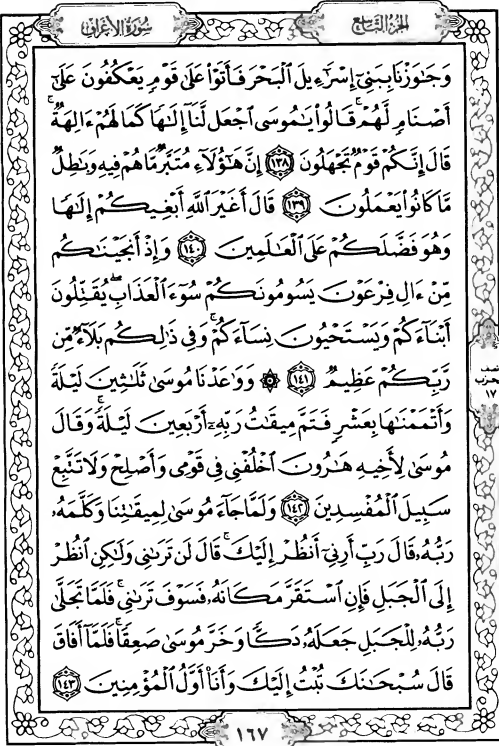 الجزء التاسع
سورة الأعراف
وَجَٰوَزْنَا بِبَنِىٓ إِسْرَٰٓءِيلَ ٱلْبَحْرَ فَأَتَوْا۟ عَلَىٰ قَوْمٍ يَعْكُفُونَ عَلَىٰٓ
أَصْنَامٍ لَّهُمْ ۚ قَالُوا۟ يَٰمُوسَى ٱجْعَل لَّنَآ إِلَٰهًا كَمَا لَهُمْ ءَالِهَةٌ ۚ
قَالَ إِنَّكُمْ قَوْمٌ تَجْهَلُونَ ١٣٨ إِنَّ هَٰٓؤُلَآءِ مُتَبَّرٌ مَّا هُمْ فِيهِ وَبَٰطِلٌ
مَّا كَانُوا۟ يَعْمَلُونَ ١٣٩ قَالَ أَغَيْرَ ٱللَّهِ أَبْغِيكُمْ إِلَٰهًا
وَهُوَ فَضَّلَكُمْ عَلَى ٱلْعَٰلَمِينَ ١٤٠ وَإِذْ أَنجَيْنَٰكُم
مِّنْ ءَالِ فِرْعَوْنَ يَسُومُونَكُمْ سُوٓءَ ٱلْعَذَابِ ۖ يُقَتِّلُونَ
أَبْنَآءَكُمْ وَيَسْتَحْيُونَ نِسَآءَكُمْ ۚ وَفِى ذَٰلِكُم بَلَآءٌ مِّن
رَّبِّكُمْ عَظِيمٌ ١٤١ ۞ وَوَٰعَدْنَا مُوسَىٰ ثَلَٰثِينَ لَيْلَةً
وَأَتْمَمْنَٰهَا بِعَشْرٍ فَتَمَّ مِيقَٰتُ رَبِّهِۦٓ أَرْبَعِينَ لَيْلَةً ۚ وَقَالَ
مُوسَىٰ لِأَخِيهِ هَٰرُونَ ٱخْلُفْنِى فِى قَوْمِى وَأَصْلِحْ وَلَا تَتَّبِعْ
سَبِيلَ ٱلْمُفْسِدِينَ ١٤٢ وَلَمَّا جَآءَ مُوسَىٰ لِمِيقَٰتِنَا وَكَلَّمَهُۥ
رَبُّهُۥ قَالَ رَبِّ أَرِنِىٓ أَنظُرْ إِلَيْكَ ۚ قَالَ لَن تَرَىٰنِى وَلَٰكِنِ ٱنظُرْ
إِلَى ٱلْجَبَلِ فَإِنِ ٱسْتَقَرَّ مَكَانَهُۥ فَسَوْفَ تَرَىٰنِى ۚ فَلَمَّا تَجَلَّىٰ
رَبُّهُۥ لِلْجَبَلِ جَعَلَهُۥ دَكًّا وَخَرَّ مُوسَىٰ صَعِقًا ۚ فَلَمَّآ أَفَاقَ
قَالَ سُبْحَٰنَكَ تُبْتُ إِلَيْكَ وَأَنَا۠ أَوَّلُ ٱلْمُؤْمِنِينَ ١٤٣
نصف
حزب
١٧
١٦٧